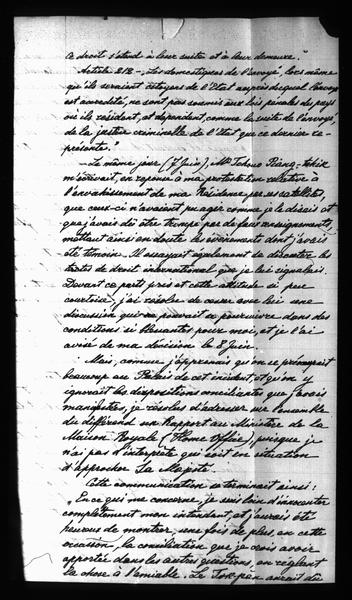 ce droit s'étend à leur suite et à leur demeure."
Article 212 - "Les domestiques de l'envoyé, lors même
qu'ils seraient citoyens de l'Etat auprès duquel l'envoyé
est accrédité, ne sont pas soumis aux lois pénales du pays
où ils résident, et dépendent, comme la suite de l'envoyé,
de la justice criminelle de l'Etat que ce dernier re-
présente."
- Le même jour (7 Juin), Mr
m'écrivait, en réponse à ma protestation relative à
l'envahissement de ma Résidence par ses satellites,
que ceux-ci n'avaient pu agir comme je le disais et
que j'avais dû être trompé par de faux enseignements,
mettant ainsi en doute les évènements dont j'avais
été témoin. Il essayait également de discuter les
textes de droit international que je lui signalais.
Devant ce parti pris et cette attitude si peu
courtoise, j'ai résolu de cesser avec lui une
discussion qui ne pouvait se poursuivre dans des
conditions si blessantes pour moi, et je l'ai
avisé de ma décision le 8 Juin.
Mais, comme j'apprenais qu'on se préoccupait
beaucoup au Palais de cet incident, et qu'on y
ignorait les dispositions conciliantes que j'avais
manifestées, je résolus d'adresser sur l'ensemble
du différend un Rapport au Ministère de la
Maison Royale (Home Office), puisque je
n'ai pas d'interprète qui soit en situation
d'approcher Sa Majesté.
Cette communication se terminait ainsi:
"En ce qui me concerne, je suis loin d'innocenter
complètement mon intendant et j'aurais été
heureux de montrer, une fois de plus, en cette
occasion, la conciliation que je crois avoir
apportée dans les autres questions, en réglant
la chose à l'amiable. Le aurait dû